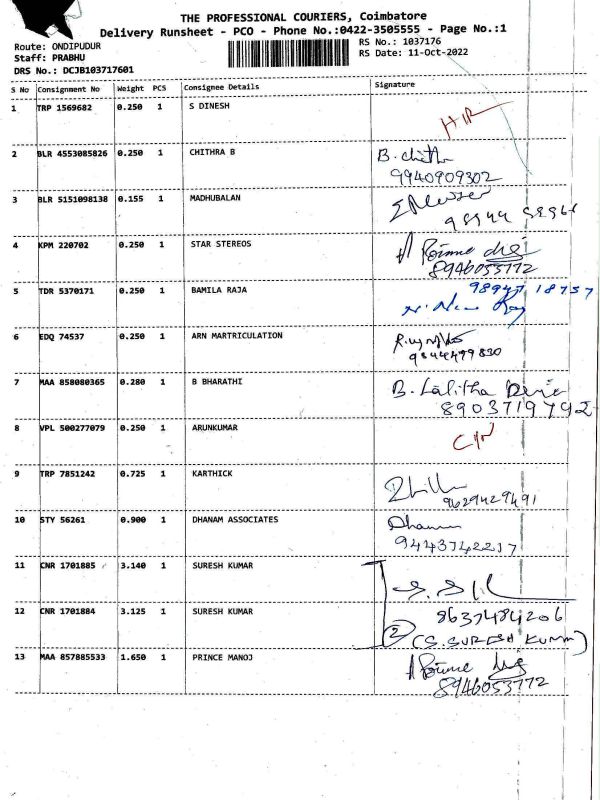 THE PROFESSIONAL COURIERS, Coimbatore
Delivery Runsheet - PCO - Phone No.:0422-3505555 - Page No.:1
Route: ONDIPUDUR
Staff: PRABHU
DRS No.: DCJB103717601
RS No.: 1037176
RS Date: 11-Oct-2022
S No Consignment No Weight PCS Consignee Details Signature
1 TRP 1569682 0.250 1 S DINESH
2 BLR 4553085826 0.250 1 CHITHRA B B. Chith
9940909302
3 BLR 5151098138 0.155 1 MADHUBALAN
4 KPM 220702 0.250 1 STAR STEREOS
8946053772
5 TDR 5370171 0.250 1 BAMILA RAJA
6 EDQ 74537 0.250 1 ARN MARTRICULATION
7 MAA 858080365 0.280 1 B BHARATHI B. Lalitha Devi
8903719792
8 VPL 500277079 0.250 1 ARUNKUMAR
9 TRP 7851242 0.725 1 KARTHICK
9629429491
10 STY 56261 0.900 1 DHANAM ASSOCIATES Dhanam
9443742217
11 CNR 1701885 3.140 1 SURESH KUMAR
12 CNR 1701884 3.125 1 SURESH KUMAR 8637484206
2 (S. SURESH KUMAR)
13 MAA 857885533 1.650 1 PRINCE MANOJ
8946053772